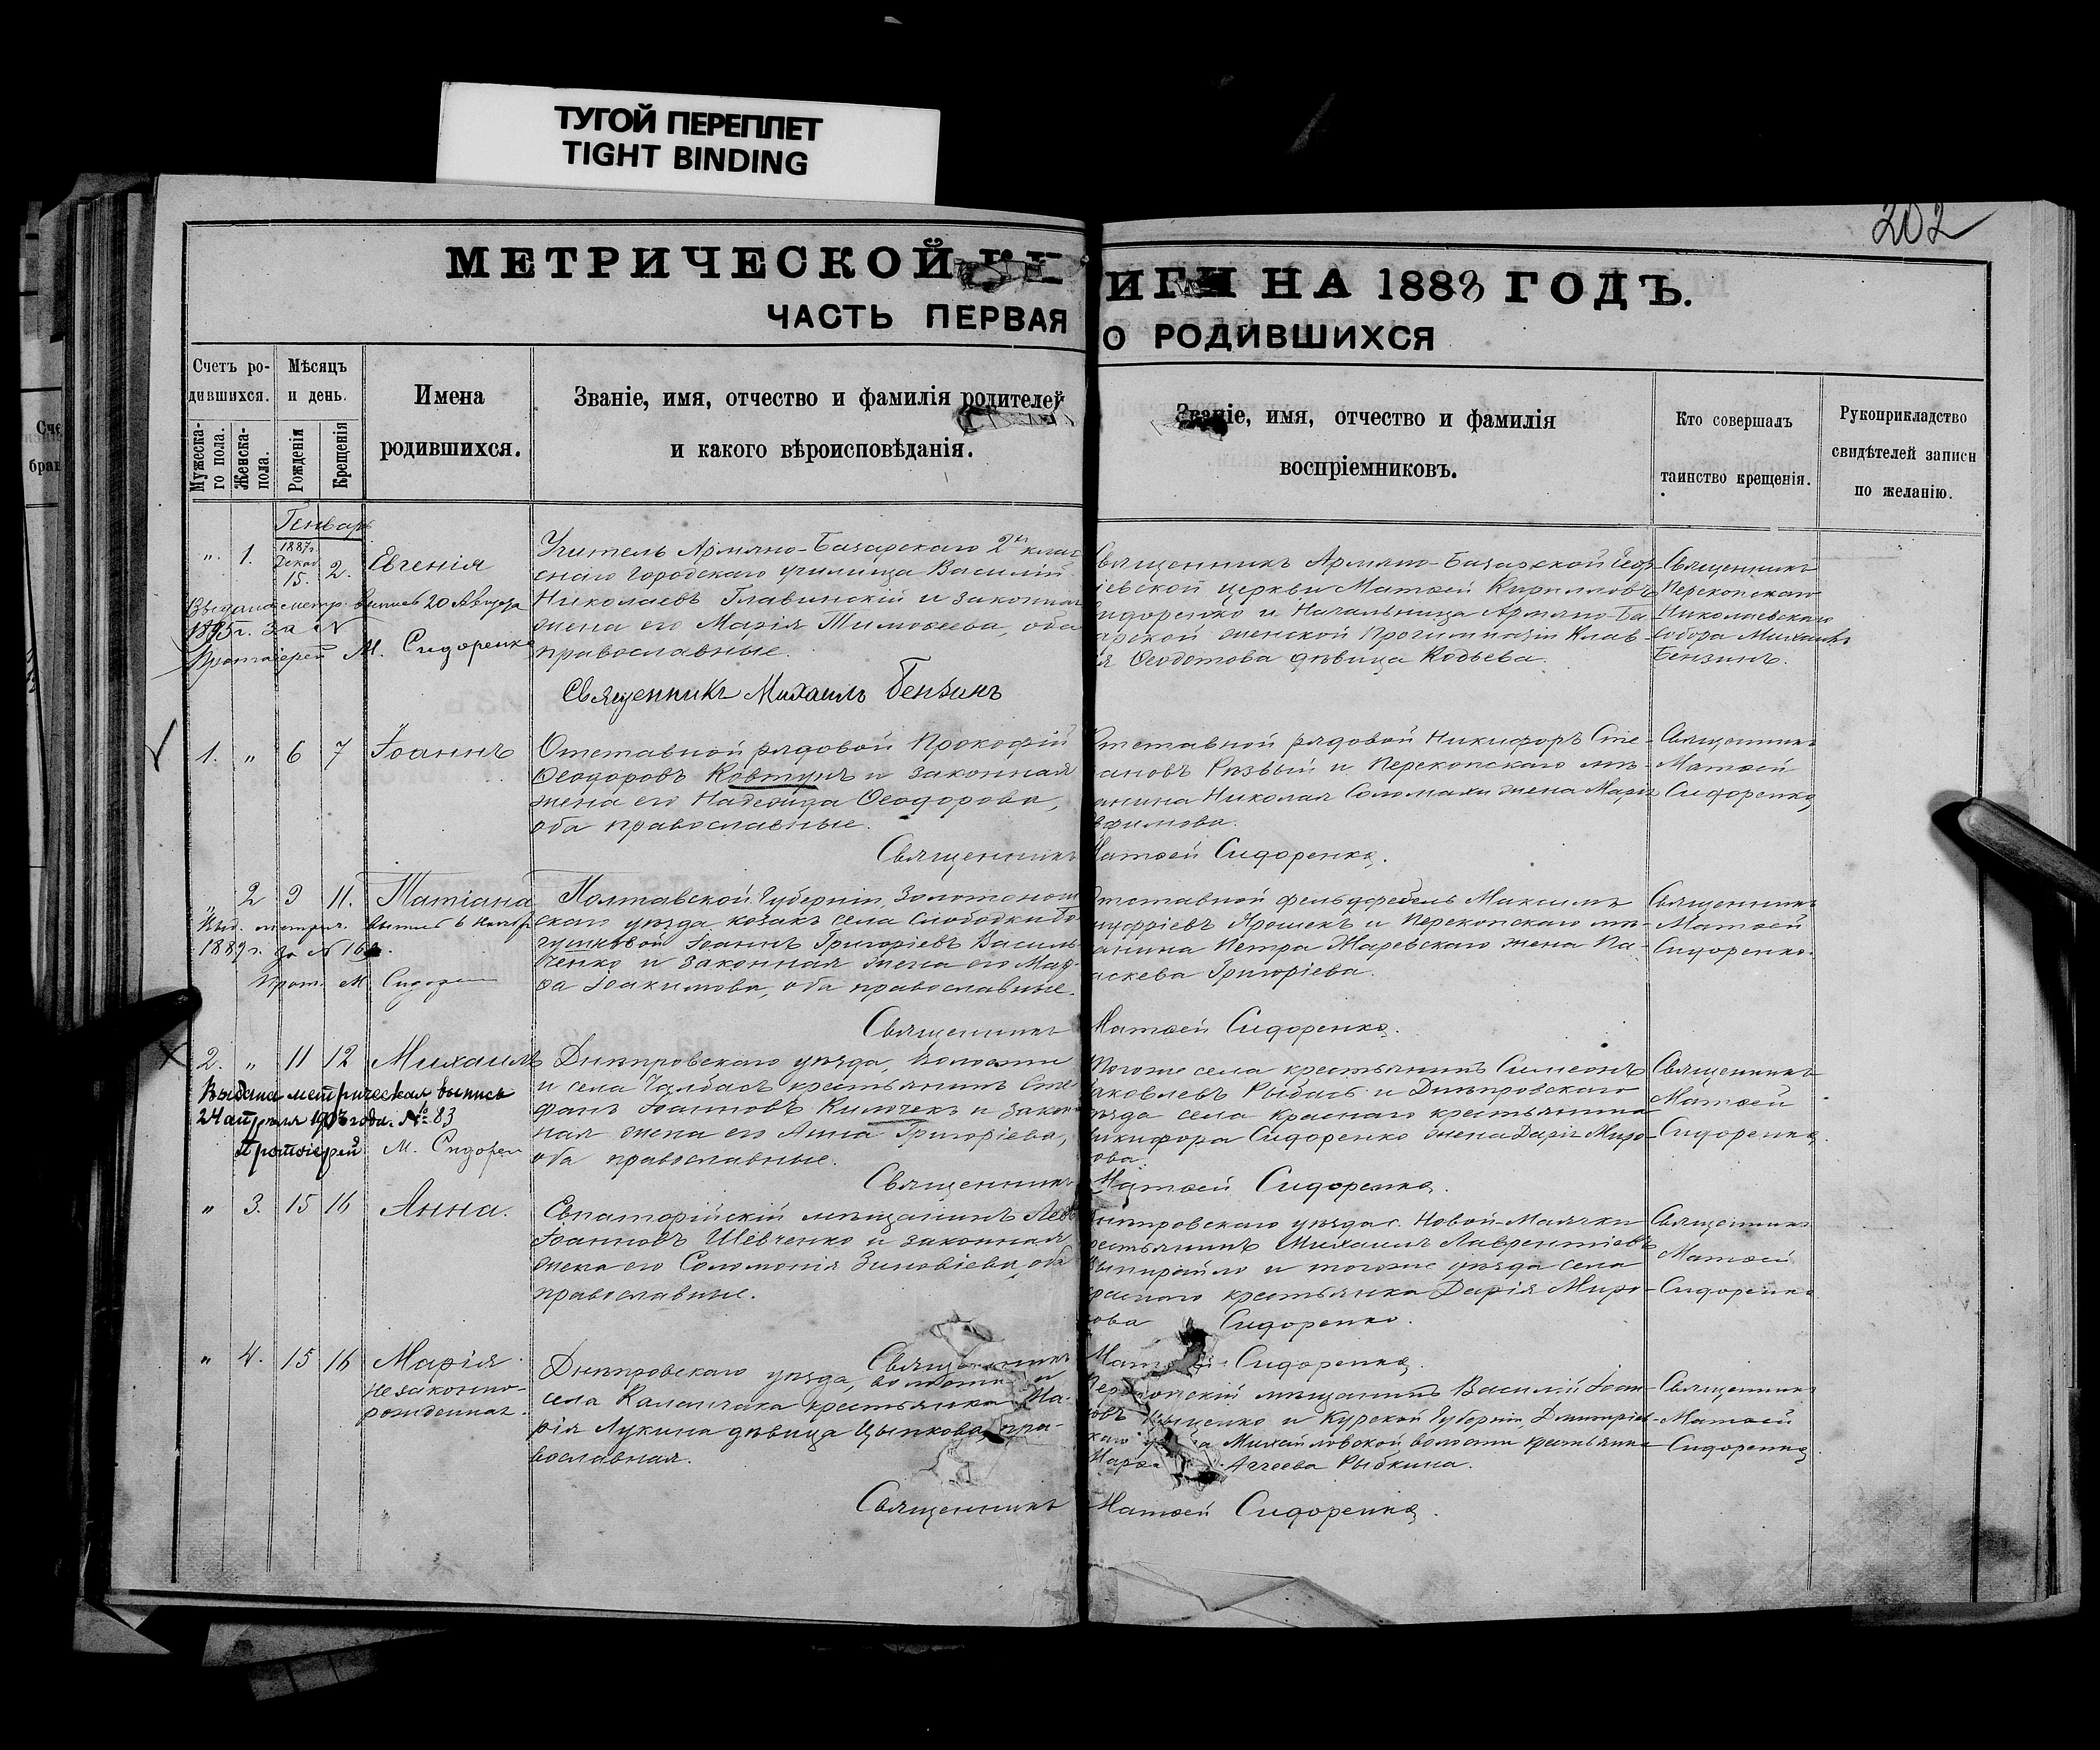 ТУГОЙ ПЕРЕПЛЕТ
TIGHT BINDING
202
МЕТРИЧЕСКОЙ КНИГИ НА 1888 ГОДЪ.
ЧАСТЬ ПЕРВАЯ О РОДИВШИХСЯ
Счетъ ро-
дившихся.
Мужеска-
го пола.
Женска-
пола.
Мѣсяцъ
и день.
Рожденія
Крещенія
Имена
родившихся.
Званіе, имя, отчество и фамилія родителей
и какого вѣроисповѣданія.
Званіе, имя, отчество и фамилія
воспріемниковъ.
Кто совершалъ
таинство крещенія.
Рукоприкладство
свидѣтелей записи
по желанію.
Генварь
" 1. 1887г. Декаб. 15. 2. Евгенія
Выдана метр. выпись 20 Августа
1895г. за №
Протоіерей М. Сидоренко
Учитель Армяно-Базарскаго 2хъ клас
снаго городскаго училища Василій
Николаевъ Главинскій и законная
жена его Марія Тимоѳеева, оба
православные.
Священникъ Михаилъ Бензинъ
Священникъ Армяно-Базарской Геор
іевской церкви Матѳей Кирилловъ
Сидоренко и Начальница Армяно-Ба
арской женской Прогимназіи Клав
я Ѳеодотова дѣвица Кодьева.
Священникъ
Перекопскаго
Николаевскаго
собора Михаилъ
Бензинъ.
1. " 6 7 Іоаннъ
Отставной рядовой Прокофій
Ѳеодоровъ Ковтунъ и законная
жена его Надежда Ѳеодорова,
оба православные.
Отставной рядовой Никифоръ Сте-
ановъ Рязвый и Перекопскаго мѣ-
анина Николая Соломахи жена Марія
фимова.
Священникъ
Матѳей
Сидоренко
Священникъ Матѳей Сидоренко.
" 2 9 11. Татіана
Выд. метрич. выпись 6 Ноябр
1889г. за № 169
Прот. М. Сидорен
Полтавской Губерніи, Золотонош
скаго уѣзда, козакъ села Слободки Бо
гушковой Іоаннъ Григоріевъ Василь
ченко и законная жена его Мар
ѳа Іоакимова, оба православные.
Отставной фельдфебель Максимъ
нуфріевъ Ярошекъ и Перекопскаго мѣ-
анина Петра Маревскаго жена Па-
аскева Григоріева.
Священникъ
Матѳей
Сидоренко.
Священникъ Матѳей Сидоренко.
2. " 11 12 Михаилъ
Выдана метрическая выпись
24 апрѣля 1903 года. № 83
Протоіерей М. Сидорен
Днѣпровскаго уѣзда, волости
и села Чалбасъ крестьянинъ Сте
фанъ Іоанновъ Килочекъ и закон
ная жена его Анна Григоріева,
оба православные.
Тогоже села крестьянинъ Симеонъ
Яковлевъ Рыбасъ и Днѣпровскаго
уѣзда села Краснаго крестьянина
Никифора Сидоренко жена Дарія Миро-
ова.
Священникъ
Матѳей
Сидоренко.
Священникъ Матѳей Сидоренко.
" 3. 15 16 Анна.
Евпаторійскій мѣщанинъ Левъ
Іоанновъ Шевченко и законная
жена его Соломонія Зиновіева, оба
православные.
Днѣпровскаго уѣзда с. Новой-Маячки
рестьянинъ Михаилъ Лаврентіевъ
и тогоже уѣзда села
раснаго крестьянка Дарія Миро-
ова Сидоренко.
Священникъ
Матѳей
Сидоренко
Священникъ Матѳей Сидоренко.
" 4. 15 16 Марія
незаконно-
рожденная.
Днѣпровскаго уѣзда, волости и
села Каланчака крестьянка Ма-
рія Лукина дѣвица Цыпкова, пра-
вославная.
Перекопскій мѣщанинъ Василій Іоан-
овъ и Курской Губерніи, Дмитріев-
каго уѣзда Михайловской волости крестьянка
Агѣева Рыбкина.
Священникъ
Матѳей
Сидоренко
Священникъ Матѳей Сидоренко.